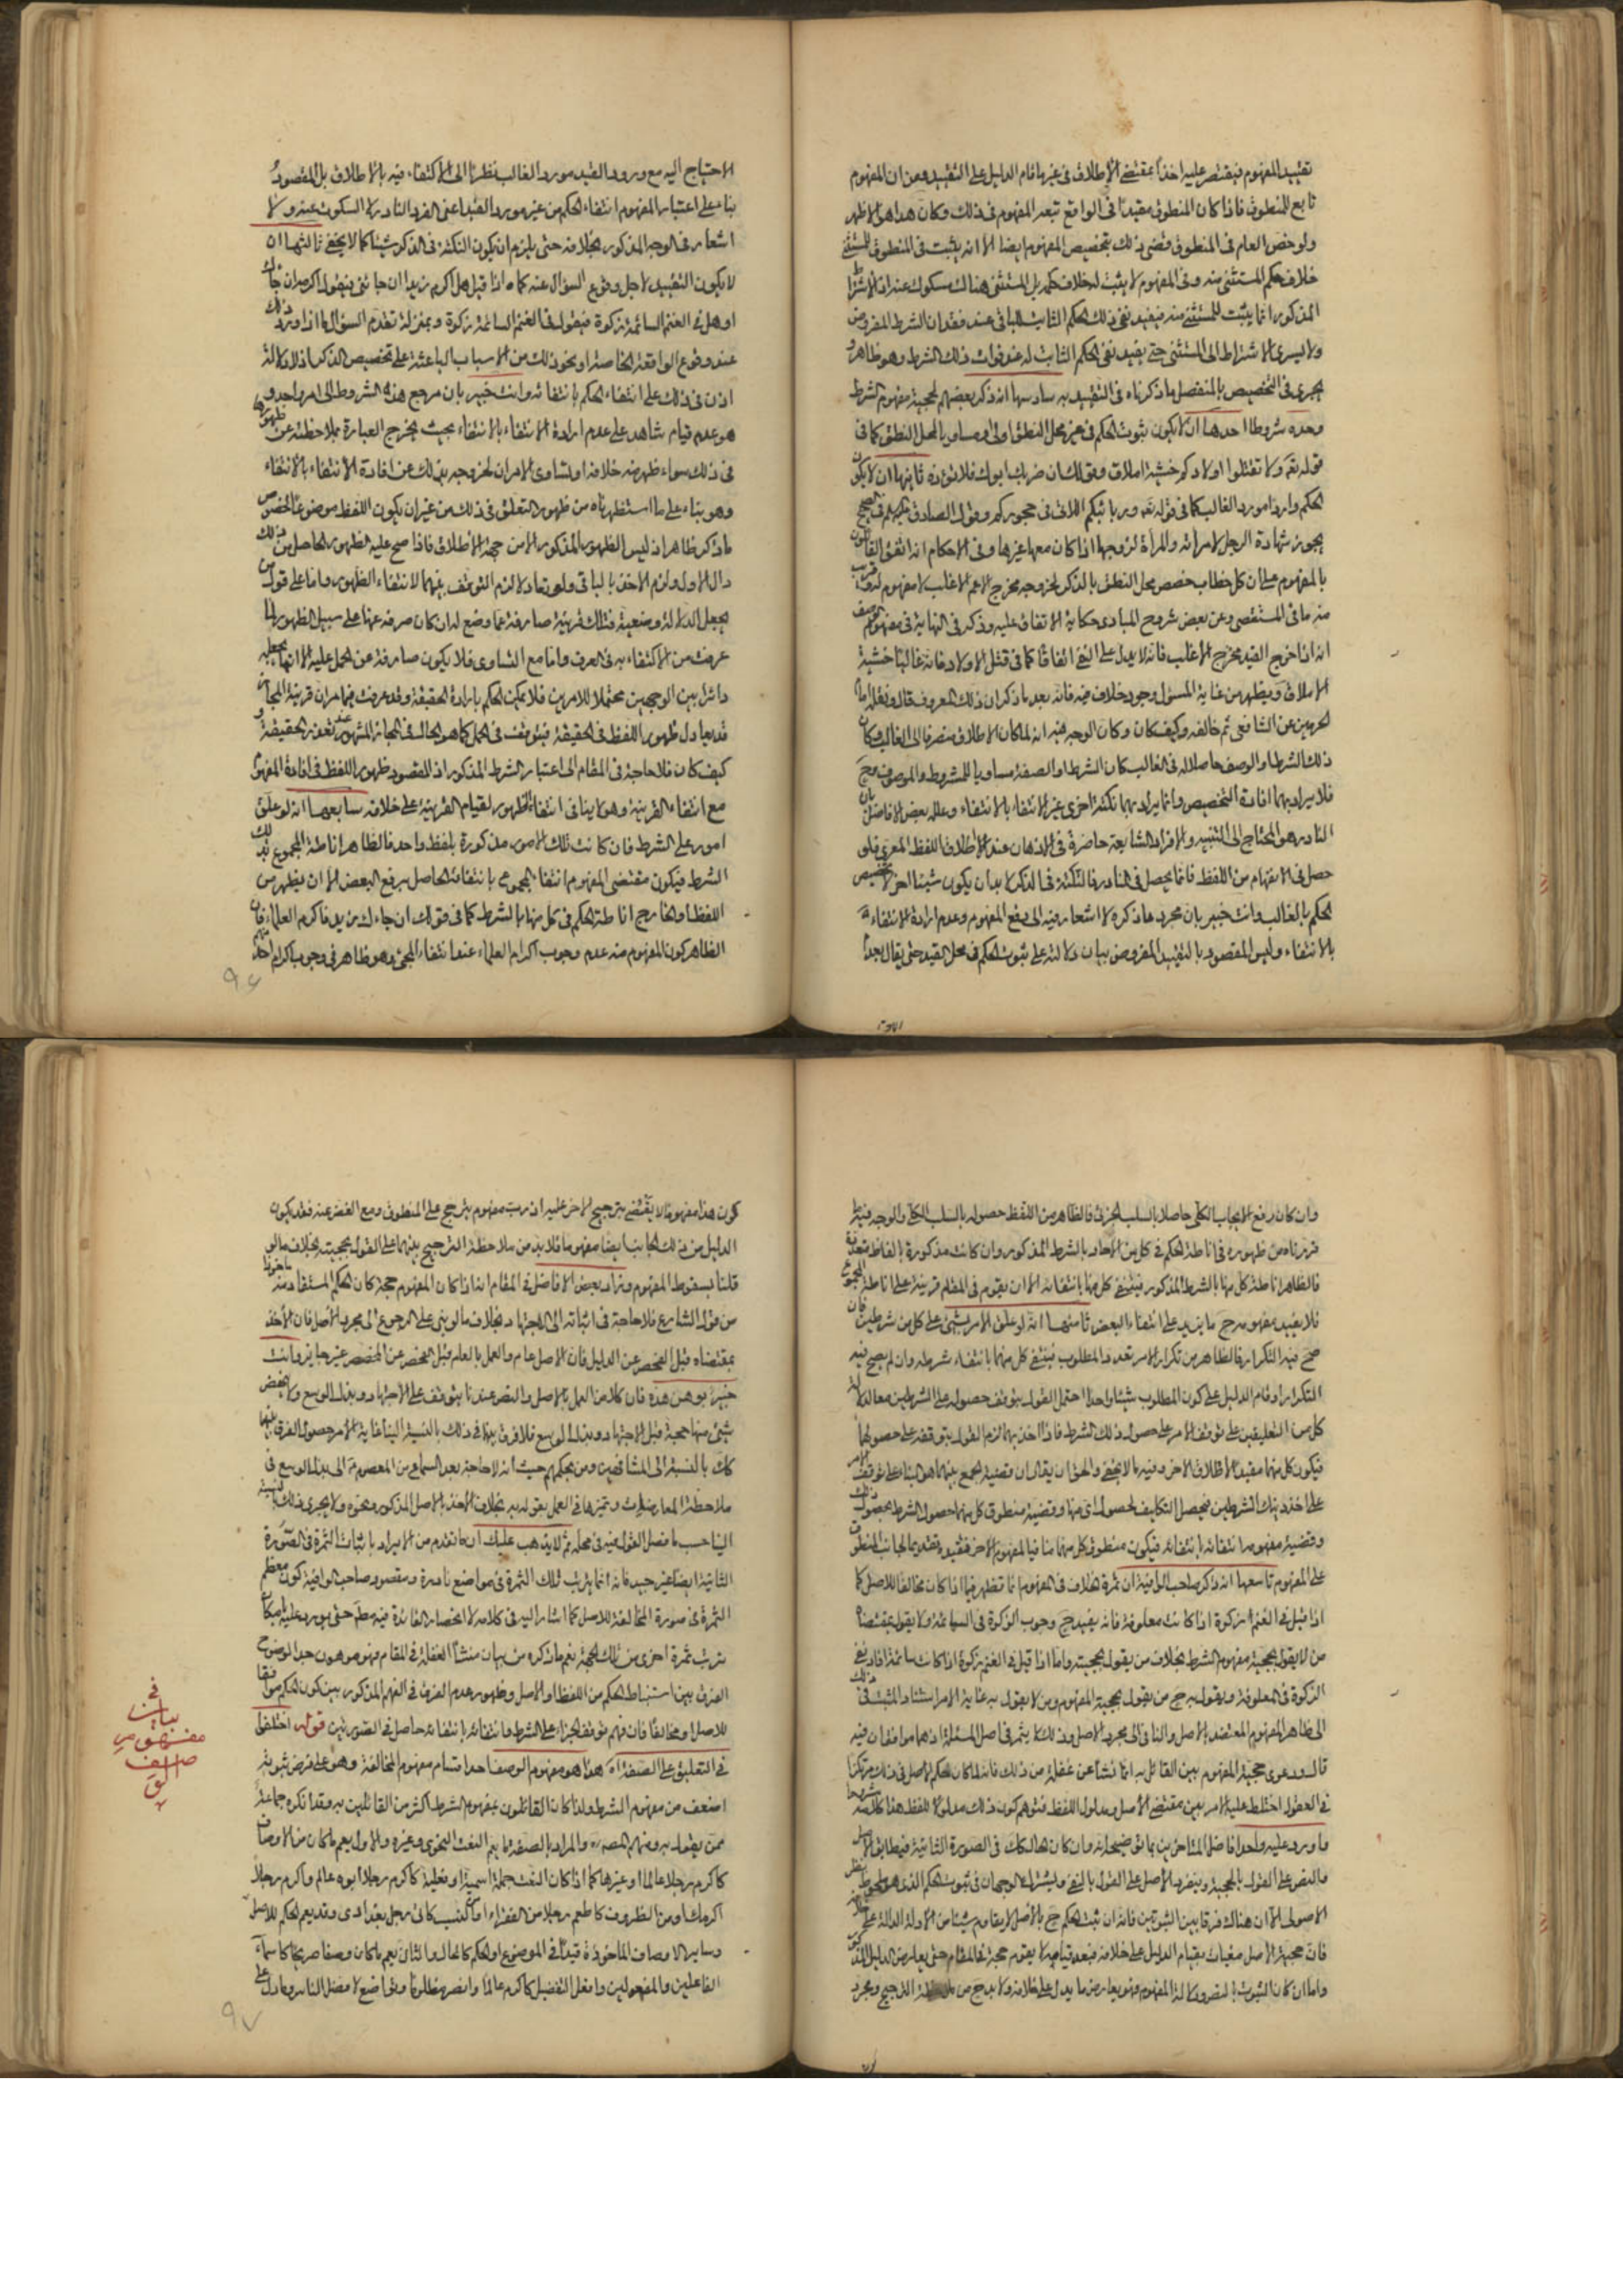 تقييد المفهوم فيقتصر عليه اخذا بمقتضى الاطلاق في غيرها قام الدليل على التقييد ومن ان المفهوم
تابع للمنطوق فاذا كان المنطوق مقيدا في الواقع تبعه المفهوم في ذلك وكان هذا هو الاظهر
ولو خص العام في المنطوق قضى ذلك بتخصيص المفهوم ايضا الا انه يثبت في المنطوق للمستثنى
خلاف حكم المستثنى منه وفي المفهوم لا يثبت له خلاف حكمه بل المستثنى هناك مسكوت عنه اذ الاشتراط
المذكور انما يثبت للمستثنى منه فيفيد نفي ذلك الحكم الثابت للباقي عند فقدان الشرط المفروض
ولا يسرى الاشتراط الى المستثنى حتى يفيد نفي الحكم الثابت له عند فوات ذلك الشرط وهو ظاهر و
يجري في التخصيص بالمنفصل ما ذكرناه في التقييد به سادسها انه ذكر بعضهم لحجية مفهوم الشرط
وحده شروطا احدها ان لا يكون ثبوت الحكم في غير محل النطق اولى او مساويا لمحل النطق كما في
قوله تعم ولا تقتلوا اولادكم خشية املاق وقولك ان ضربك ابوك فلا تؤذه ثانيها ان لا يكون
الحكم واردا مورد الغالب كما في قوله تعم وربائبكم اللاتي في حجوركم وقول الصادق عليه السلم في الصحيح
يجوز شهادة الرجل لامراته والمراة لزوجها اذا كان معها غيرها وفي الاحكام انه اتفق القائلون
بالمفهوم على ان كل خطاب خصص محل النطق بالذكر لخروجه مخرج الاعم الاغلب لا مفهوم له وقريب
منه ما في المستقصى وعن بعض شروح المبادي حكاية الاتفاق عليه وذكر في النهاية في مفهوم الوصف
انه اذا خرج القيد مخرج الاغلب فانه لا يدل على النفي اتفاقا كما في قتل الاولاد فانه غالبا خشية
الاملاق ويظهر من غاية المسؤل وجود خلاف فيه فانه بعد ما ذكر ان ذلك المعروف قال ونقل امام
الحرمين عن الشافعي ثم خالفه وكيف كان وكان الوجه فيه انه لما كان الاطلاق منصرفا الى الغالب وكان
ذلك الشرط او الوصف حاصلا له في الغالب كان الشرط او الصفة مساويا للمشروط والموصوف وح
فلا يراد بهما افادة التخصيص وانما يراد بهما نكتة اخرى غير الانتفاء بالانتفاء وعلله بعض الافاضل بان
النادر هو المحتاج الى التنبيه والافراد الشايعة حاضرة في الاذهان عند الاطلاق اللفظ المعرى فلو
حصل في الافهام من اللفظ فانما يحصل في النادر فالنكتة في الذكر لا بد ان يكون شيئا اخر لا تخصيص
الحكم بالغالب وانت خبير بان مجرد ما ذكره لا اشعار فيه الى دفع المفهوم وعدم ارادة الانتفاء
بالانتفاء وليس المقصود بالتقييد المفروض بيان دلالته على ثبوت الحكم في محل القيد حتى يقال بعدم
الاحتياج اليه مع ورود القيد مورد الغالب نظرا الى الاكتفاء فيه بالاطلاق بل المقصود
بناء على اعتبار المفهوم انتفاء الحكم من غير مورد القيد اعني الفرد النادر لا السكوت عنه ولا
اشعار في الوجه المذكور بخلافه حتى يلزم ان يكون النكتة في الذكر شيئا كما لا يخفى ثالثها ان
لا يكون التقييد لاجل وقوع السؤال عنه كما اذا قيل هل اكرم زيدا ان جائني فيقول اكرمه ان جائك
او هل في الغنم السائمة زكوة فيقول في الغنم السائمة زكوة وبمنزلة تقدم السؤال ما اذا ورد ذلك
عند وقوع الواقعة الخاصة او نحو ذلك من الاسباب الباعثة على تخصيص الذكر اذ لا دلالة
اذن في ذلك على انتفاء الحكم بانتفائه وانت خبير بان مرجع هذه الشروط الى امر واحد و
هو عدم قيام شاهد على عدم ارادة الانتفاء بالانتفاء بحيث يخرج العبارة بملاحظته عن ظهورها
في ذلك سواء ظهر منه خلافه او تساوى الامران لخروجه بذلك عن افادة الانتفاء بالانتفاء
وهو بناء على ما استظهرناه من ظهور التعلق في ذلك من غير ان يكون اللفظ موضوعا لخصوص
ما ذكر ظاهر اذ ليس الظهور المذكور الا من جهة الاطلاق فاذا صح عليه الظهور الحاصل من ذلك
دال الاول ولزم الاخذ بالباقي ولو تعادلا لزم التوقف بينهما لانتفاء الظهور واما على قول من
يجعل الدلالة وضعية فتلك قرينة صارفة عما وضع له ان كان صرفه عنها على سبيل الظهور لما
عرفت من الاكتفاء به في العرف واما مع التساوي فلا يكون صارفة عن الحمل عليه الا انها يجعله
دائرا بين الوجهين محتملا للامرين فلا يمكن الحكم بارادة الحقيقة وقد عرفت فيما مر ان قرينة المجاز
قد يعادل ظهور اللفظ في الحقيقة فيتوقف في الحمل كما هو الحال في المجاز المشهور عند تعذر الحقيقة و
كيف كان فلا حاجة في المقام الى اعتبار الشرط المذكور اذ المقصود ظهور اللفظ في افادة المفهوم
مع انتفاء القرينة وهو لا ينافي انتفاء الظهور لقيام القرينة على خلافه سابعها انه لو علق
امور على الشرط فان كانت تلك الامور مذكورة بلفظ واحد فالظاهر اناطة المجموع بذلك
الشرط فيكون مقتضى المفهوم انتفاء المجموع بانتفائه الحاصل برفع البعض الا ان يظهر من
اللفظ او الخارج اناطة الحكم في كل منها بالشرط كما في قولك ان جاءك زيد فاكرم العلماء فان
الظاهر كون المفهوم منه عدم وجوب اكرام العلماء عند انتفاء المجئ وهو ظاهر في وجوب اكرام احد منهم
٩٤
وان كان رفع الايجاب الكلي حاصلا بالسلب الجزئي فالظاهر من اللفظ حصوله بالسلب الكلي والوجه فيه ما
قررناه من ظهوره في اناطة الحكم في كل من الاحاد بالشرط المذكور وان كانت مذكورة بالفاظ متعددة
فالظاهر اناطة كل منها بالشرط المذكور فينتفي كل منها بانتفائه الا ان يقوم في المقام قرينة على اناطة المجموع
فلا يفيد مفهومه ح ما يزيد على انتفاء البعض ثامنها انه لو علق الامر بشئ على كل من شرطين فان
صح فيه التكرار فالظاهر من تكرار الامر تعدد المطلوب فينتفي كل منهما بانتفاء شرطه وان لم يصح فيه
التكرار او قام الدليل على كون المطلوب شيئا واحدا احتمل القول بتوقف حصوله على الشرطين معا لدلالة
كل من التعليقين على توقف الامر على حصول ذلك الشرط فاذا اخذ بهما لزم القول بتوقفه على حصولهما
فيكون كل منهما مقيدا لاطلاق الاخر وفيه ما لا يخفى والحق ان يقال ان قضية الجمع بينهما هو البناء على توقف الامر
على احد ذينك الشرطين فيحصل التكليف لحصول اي منهما وقضية منطوق كل منهما حصول الشرط بحصول ذلك
وقضية مفهومه انتفائه بانتفائه فيكون منطوق كل منهما منافيا لمفهوم الاخر فيقيد به تقديما لجانب المنطوق
على المفهوم تاسعها انه ذكر صاحب الوافية ان ثمرة الخلاف في المفهوم انما تظهر فيما اذا كان مخالفا للاصل كما
اذا قيل في الغنم زكوة اذا كانت معلوفة فانه يفيد ح وجوب الزكوة في السائمة ولا يقول بمقتضاه
من لا يقول بحجية مفهوم الشرط بخلاف من يقول بحجيته واما اذا قيل في الغنم زكوة اذا كانت سائمة افاد نفي
الزكوة في المعلوفة ويقول به ح من يقول بحجية المفهوم ومن لا يقول به غاية الامر استناد المثبت في ذلك
الى ظاهر المفهوم المعتضد بالاصل والنافي الى مجرد الاصل وذلك لا يثمر في اصل المسئلة اذ هما موافقان فيه
قال ودعوى حجية المفهوم بين القائل به انما نشأ عن غفلة من ذلك فانه لما كان الحكم الاصل في ذلك مرتكزا
في العقول اختلط عليه الامر بين مقتضى الاصل ومدلول اللفظ فتوهم كون ذلك مدلولا للفظ هذا
واورد عليه واحد افاضل المتاخرين بما توضيحه انه وان كان الحال كذلك في الصورة الثانية فيطابق الاصل
والنص على القول بالحجية وينفرد الاصل على القول بالنفي وليشترك الوجهان في ثبوت الحكم الذي هو
الاصولي الا ان هناك فرقا بين الثبوتين فانه ان ثبت الحكم ح بالاصل لا يقاوم شيئا من الادلة الدالة على خلافه
فان حجية الاصل مغياة بقيام الدليل على خلافه فبعد قيامه لا يقوم حجة في المقام حتى يعارض الدليل المذكور
واما ان كان الثبوت بالنص ودلالة المفهوم فهو يعارض ما يدل على خلافه ولا بد ح من ملاحظة الترجيح ومجرد
كون هذا مفهوما لا يقتضي بترجيح الاخر عليه اذ رب مفهوم يترجح على المنطوق ومع الغض عنه فقد يكون
الدليل من ذلك الجانب ايضا مفهوما فلا بد من ملاحظة الترجيح بينهما على القول بحجيته بخلاف ما لو
قلنا بسقوط المفهوم وزاد بعض الافاضل في المقام انه اذا كان المفهوم حجة كان الحكم المستفاد منه ماخوذا
من قول الشارع فلا حاجة في اثباته الى الاجتهاد بخلاف ما لو بني على الرجوع الى مجرد الاصل فان الاخذ
بمقتضاه قبل الفحص عن الدليل فان الاصل عام والعمل بالعام قبل الفحص عن المخصص غير جايز وانت
خبير بوهن هذه فان كلا من العمل بالاصل والنص عندنا يتوقف على الاجتهاد وبذل الوسع ولا ينهض
شئ منهما حجة قبل الاجتهاد وبذل الوسع فلا فرق بينهما في ذلك بالنسبة الينا غاية الامر حصول الفرق بينهما
كك بالنسبة الى المشافهين ومن بحكمهم حيث انه لا حاجة بعد السماع من المعصوم ع الى بذل الوسع في
ملاحظة المعارضات وتميزها في العمل بقوله به بخلاف الاخذ بالاصل المذكور ونحوه ولا يجري ذلك بالنسبة
الينا حسب ما فصل القول فيه في محله ثم لا يذهب عليك ان ما تقدم من الايراد باثبات الثمرة في الصورة
الثانية ايضا غير جيد فانه انما يترتب تلك الثمرة في مواضع نادرة ومقصود صاحب الوافية كون معظم
الثمرة في صورة المخالفة للاصل كما اشار اليه في كلامه لا انحصار الفائدة فيه مطم حتى يورد عليه بامكان
ترتب ثمرة اخرى من تلك الجهة نعم ما ذكره من بيان منشأ الغفلة في المقام فهو موهون جدا لوضوح
الفرق بين استنباط الحكم من اللفظ او الاصل وظهور عدم الفرق في الفهم المذكور بين كون الحكم موافقا
للاصل او مخالفا فان فهم توقف الجزاء على الشرط وانتفائه بانتفائه حاصل في الصورتين قوله اختلفوا
في التعليق على الصفة اه هذا هو مفهوم الوصف احد اقسام مفهوم المخالفة وهو على فرض ثبوته
اضعف من مفهوم الشرط ولذا كان القائلون بمفهوم الشرط اكثر من القائلين به وقد انكره جماعة
ممن يقول به ومنهم المصره والمراد بالصفة ما يعم النعت النحوي وغيره والاول يعم ما كان من الاوصاف
كاكرم رجلا عالما او غيرها كما اذا كان النعت جملة اسمية او فعلية كاكرم رجلا ابوه عالم واكرم رجلا
اكرمك او من الظروف كاطعم رجلا من الفقراء او كالنسب كائت رجل بغدادي وقد يعم الحكم للاصل
وساير الاوصاف الماخوذة قيدا في الموضوع او الحكم كالحال والثاني يعم ما كان وصفا صريحا كاسماء
الفاعلين والمفعولين وافعل التفضيل كاكرم عالما وانصر مظلوما وتواضع لافضل الناس وما دل على
في
بيان
مفهوم
الوصف
٩٧